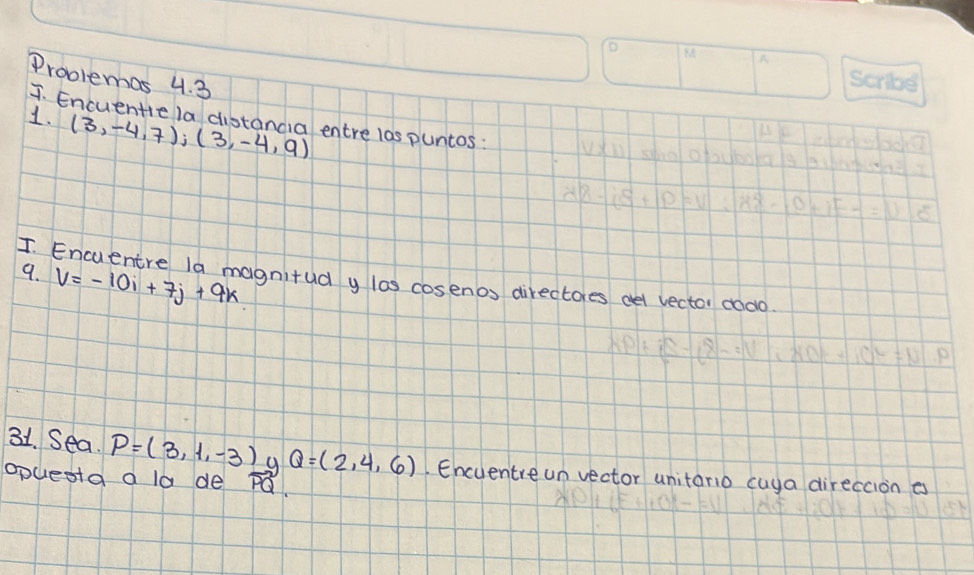 D M A
Scribe
Problemas 4.3
I. Encuentre la distancia entre los puntos:
1. (3,-4,7); (3,-4,9)
I. Encuentre la magnitud y los cosenos directores del vector dado.
9. V= -10i + 7j + 9k
31. Sea. P=(3,1,-3) y Q=(2,4,6). Encuentre un vector unitario cuya dirección es
opuesta a la de PQ.